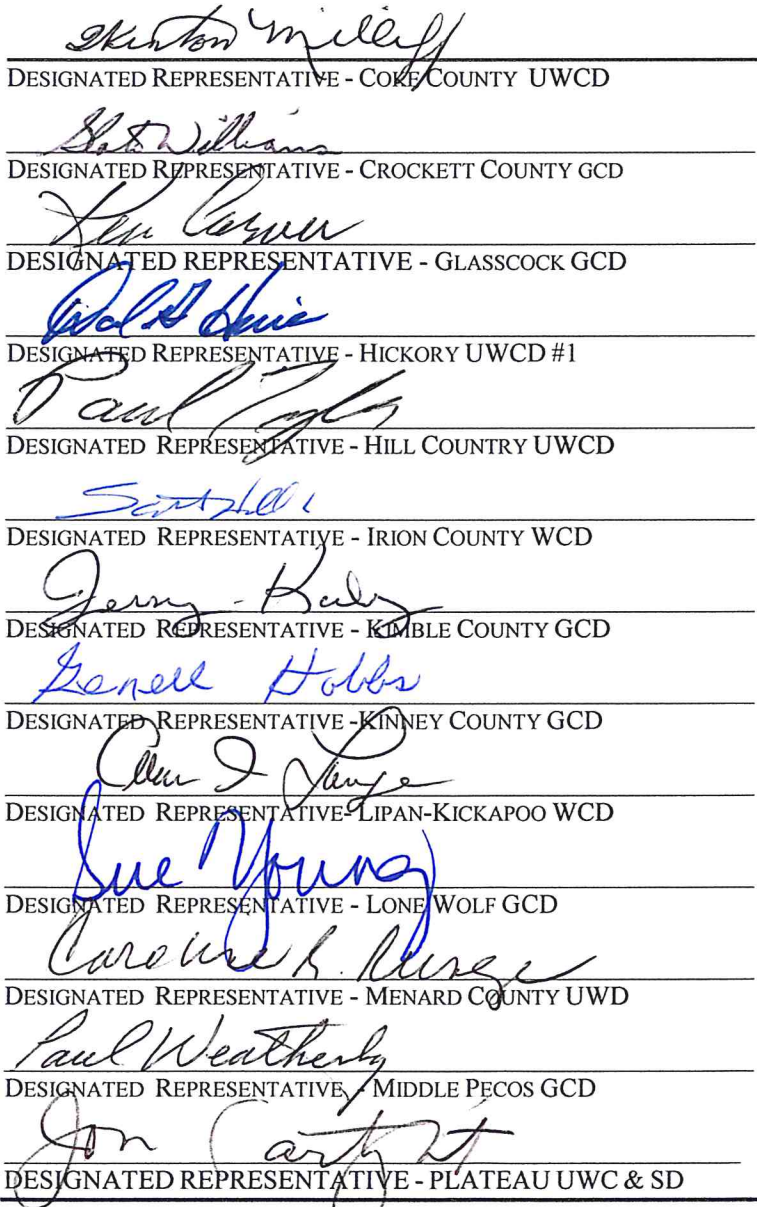 Skinton Milliff
DESIGNATED REPRESENTATIVE - COKE COUNTY UWCD
Slate Williams
DESIGNATED REPRESENTATIVE - CROCKETT COUNTY GCD
Carver
DESIGNATED REPRESENTATIVE - GLASSCOCK GCD
DESIGNATED REPRESENTATIVE - HICKORY UWCD #1
Paul Taylor
DESIGNATED REPRESENTATIVE - HILL COUNTRY UWCD
Scott Holl
DESIGNATED REPRESENTATIVE - IRION COUNTY WCD
Jerry Kirby
DESIGNATED REPRESENTATIVE - KIMBLE COUNTY GCD
Genell Hobbs
DESIGNATED REPRESENTATIVE -KINNEY COUNTY GCD
Allan J Lange
DESIGNATED REPRESENTATIVE- LIPAN-KICKAPOO WCD
Sue Young
DESIGNATED REPRESENTATIVE - LONE WOLF GCD
Caroline R. Runge
DESIGNATED REPRESENTATIVE - MENARD COUNTY UWD
Paul Weatherby
DESIGNATED REPRESENTATIVE - MIDDLE PECOS GCD
Jon Cartwright
DESIGNATED REPRESENTATIVE - PLATEAU UWC & SD